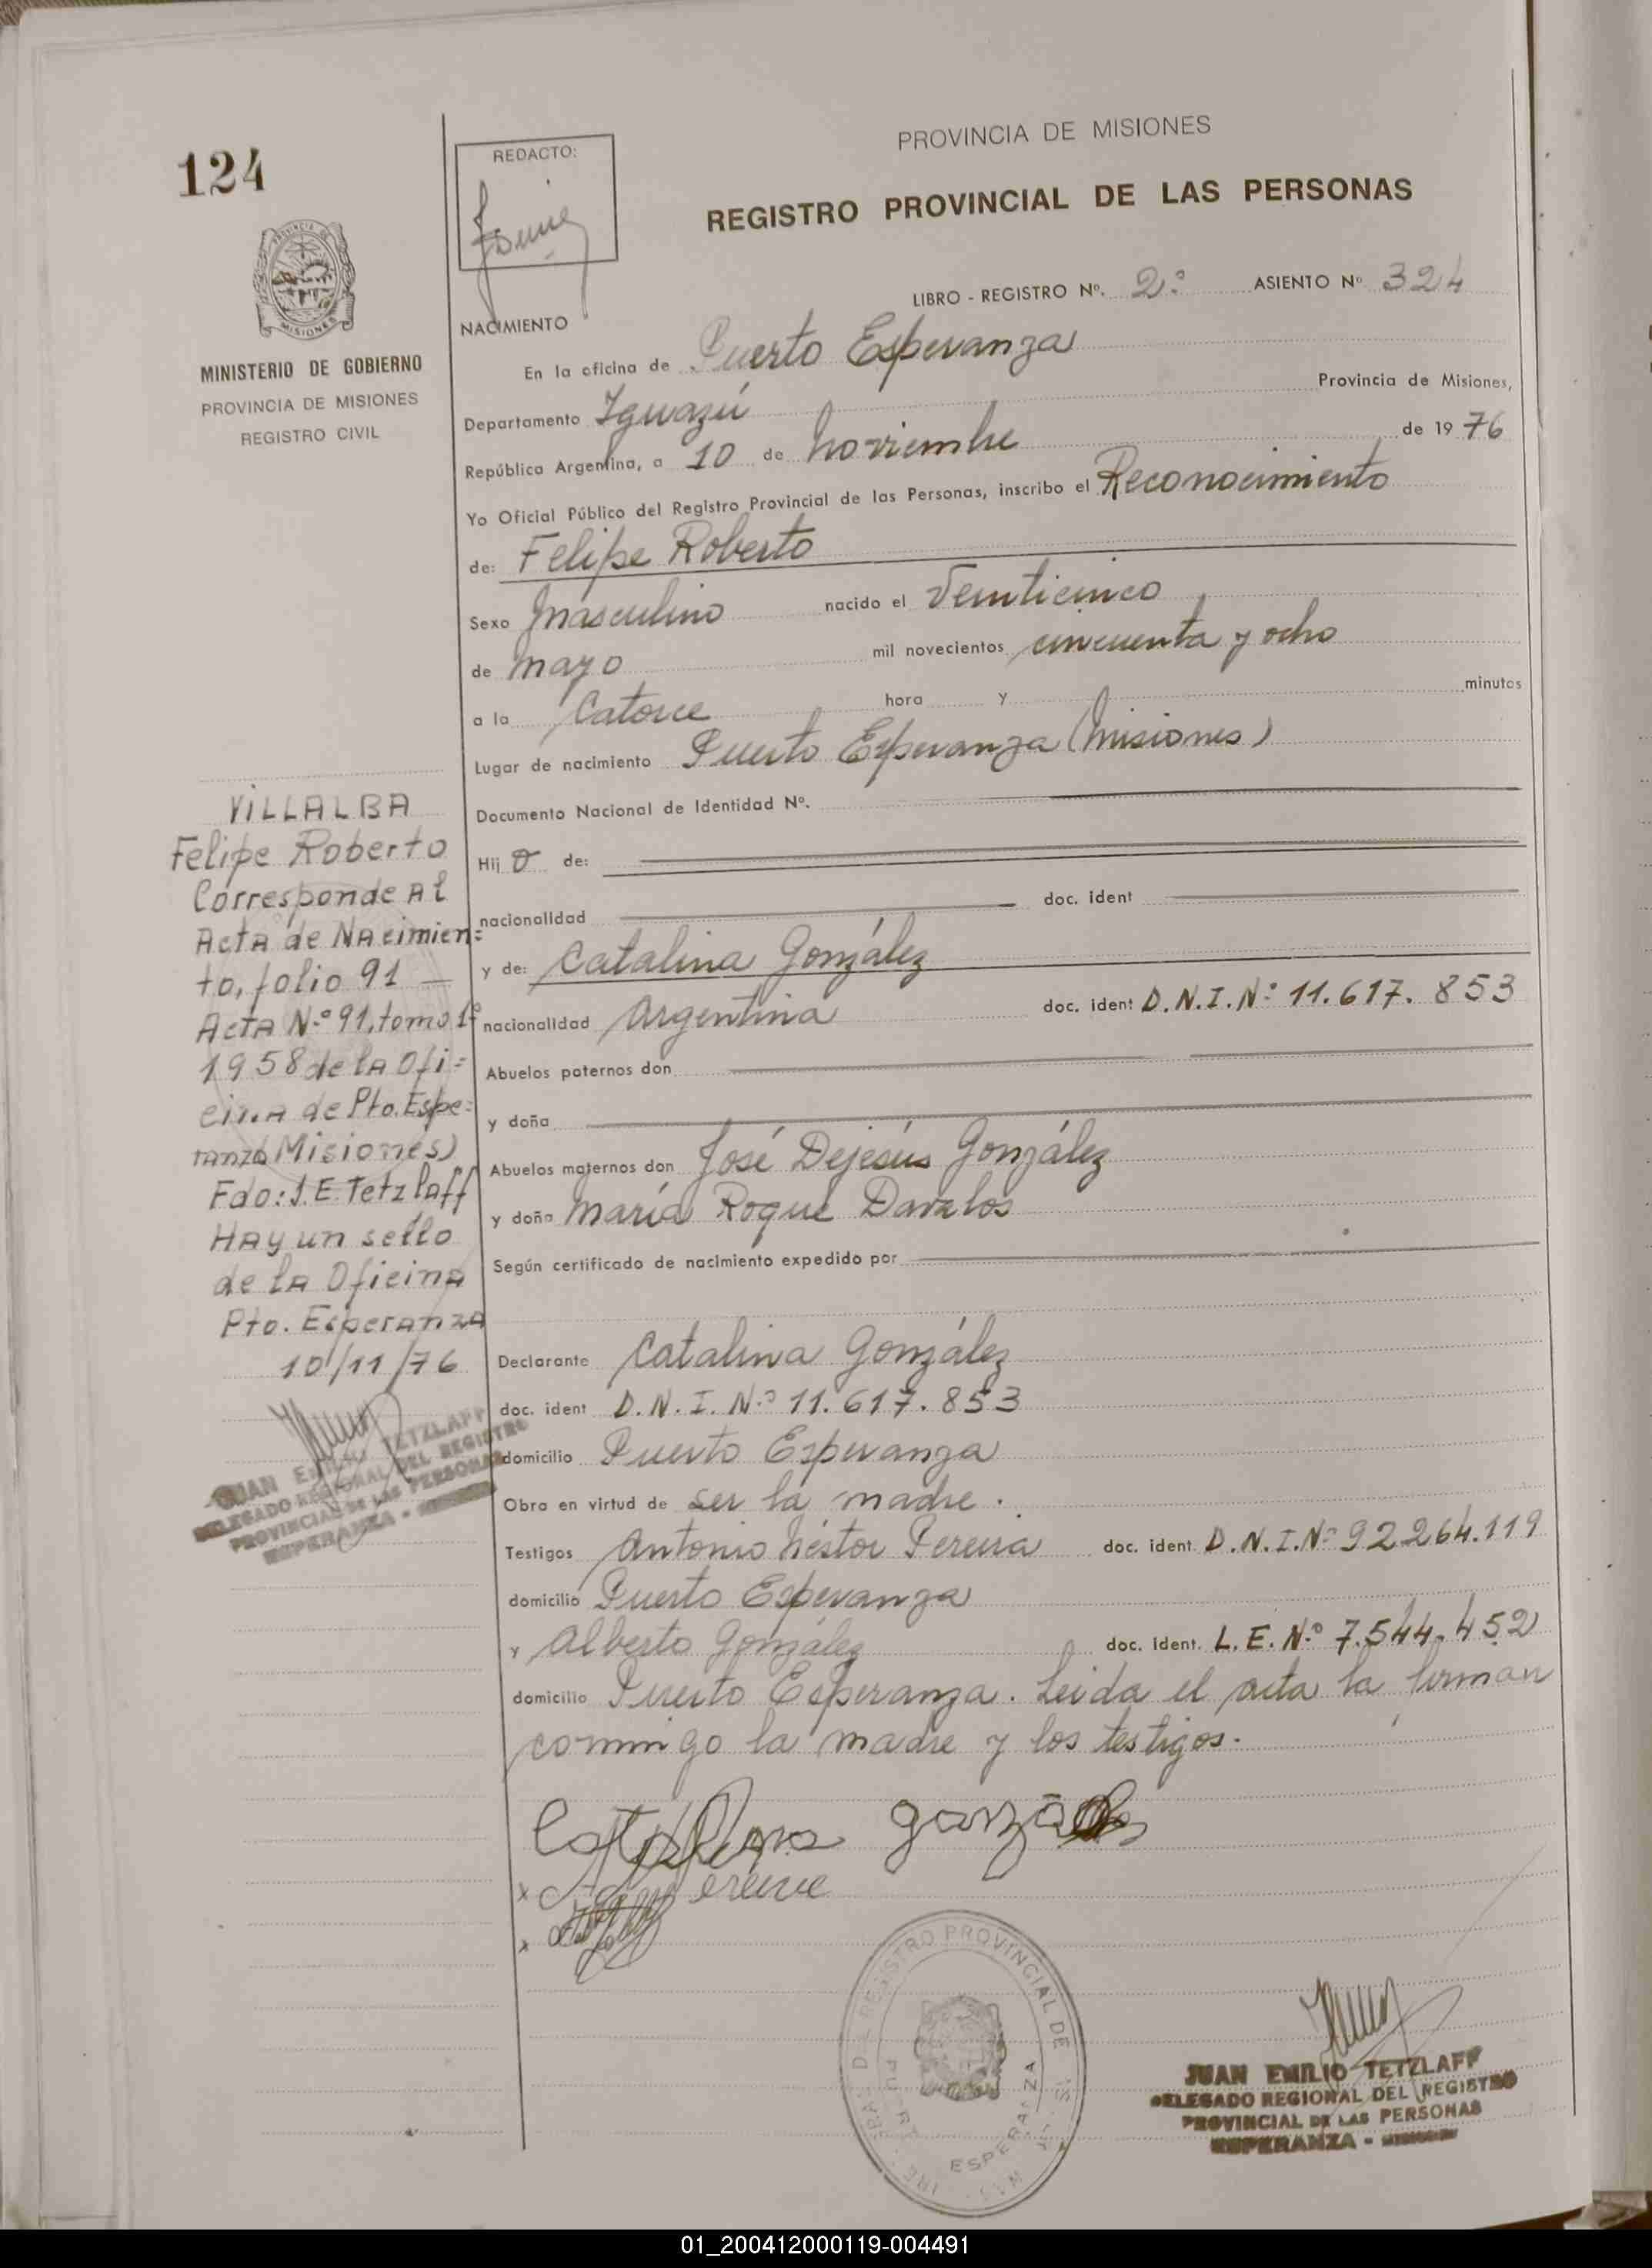 124
PROVINCIA DE MISIONES
REGISTRO PROVINCIAL DE LAS PERSONAS
REDACTO:
MISIONES
MINISTERIO DE GOBIERNO
PROVINCIA DE MISIONES
REGISTRO CIVIL
LIBRO - REGISTRO Nº. 2º ASIENTO Nº 324
NACIMIENTO
En la oficina de Puerto Esperanza
Provincia de Misiones,
Departamento Iguazú
República Argentina, a 10 de noviembre de 1976
Yo Oficial Público del Registro Provincial de las Personas, inscribo el Reconocimiento
de: Felipe Roberto
Sexo Masculino nacido el Veinticinco
de mayo mil novecientos cincuenta y ocho
a la Catorce hora y minutos
Lugar de nacimiento Puerto Esperanza (Misiones)
Documento Nacional de Identidad Nº.
Hij o de:
nacionalidad doc. ident
y de: Catalina González
nacionalidad Argentina doc. ident D.N.I.Nº 11.617.853
Abuelos paternos don
y doña
Abuelos maternos don José Dejesús González
y doña María Roque Davalos
Según certificado de nacimiento expedido por
Declarante Catalina González
doc. ident D.N.I.Nº 11.617.853
domicilio Puerto Esperanza
Obra en virtud de ser la madre.
Testigos Antonio Néstor Pereira doc. ident D.N.I.Nº 92264.119
domicilio Puerto Esperanza
y Alberto González doc. ident. L.E.Nº 7.544.452
domicilio Puerto Esperanza. Leida el acta la firman
conmigo la madre y los testigos.
VILLALBA
Felipe Roberto
Corresponde Al
Acta de Nacimien=
to, folio 91
Acta N.º 91, tomo 1º
1958 de la Ofi=
cina de Pto. Espe=
ranza Misiones)
Fdo: J.E. Tetzlaff
Hay un sello
de la Oficina
Pto. Esperanza
10/11/76
JUAN EMILIO TETZLAFF
DELEGADO REGIONAL DEL REGISTRO
PROVINCIAL DE LAS PERSONAS
ESPERANZA -
Catalina
REGISTRO PROVINCIAL DE
ESPERANZA
JUAN EMILIO TETZLAFF
DELEGADO REGIONAL DEL REGISTRO
PROVINCIAL DE LAS PERSONAS
ESPERANZA -
01_200412000119-004491